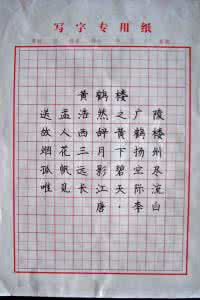 写字专用纸
黄鹤楼
送孟浩然之广陵
故人西辞黄鹤楼
烟花三月下扬州
孤帆远影碧空尽
唯见长江天际流
唐·李白